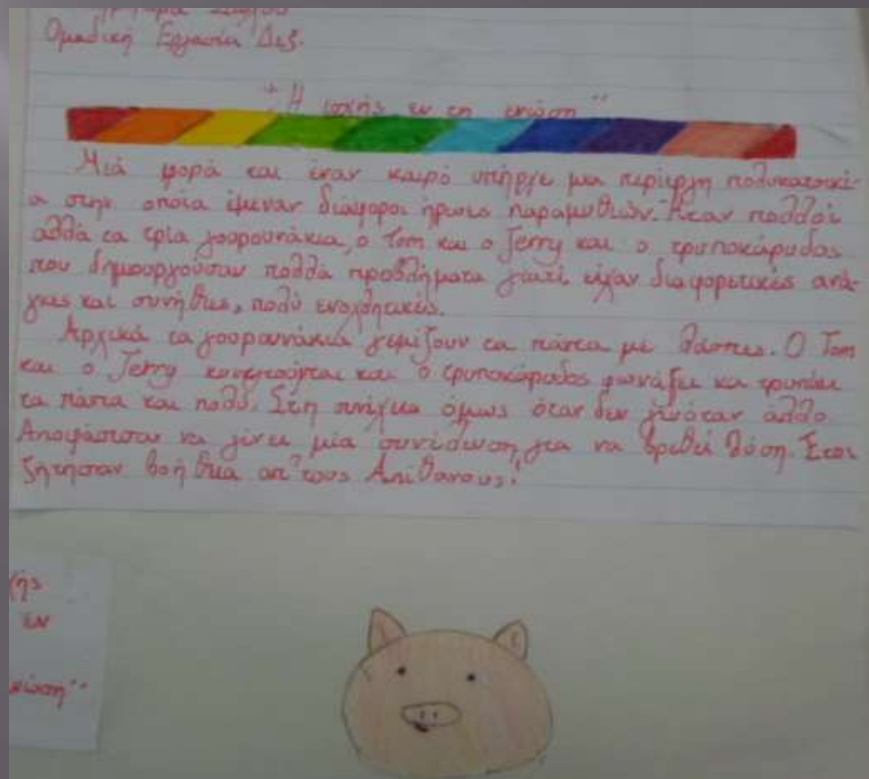 Ομαδική Εργασία Δεξ.
"Η ισχής εν τη ενώση"
Μιά φορά και έναν καιρό υπήρχε μια περίεργη πολυκατοικί-
α στην οποία έμεναν διάφοροι ήρωες παραμυθιών. Ήταν πολλοί
αλλά τα τρία γουρουνάκια, ο Tom και ο Jerry και ο τρυποκάρυδος
που δημιουργούσαν πολλά προβλήματα γιατί είχαν διαφορετικές ανά-
γκες και συνήθιες, πολύ ενοχλητικές.
Αρχικά τα γουρουνάκια γεμίζουν τα πάντα με λάσπες. Ο Tom
και ο Jerry και ο τρυποκάρυδος φωνάζει κα τρυπάει
τα πάντα και πολύ. Στη όμως όταν δεν άλλο
Αποφάσισαν να γίνει μία για να βρεθεί λύση. Έτσι
ζήτησαν βοήθεια απ' τους Απίθανους!
εν